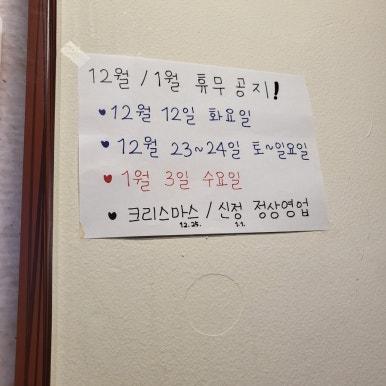 12월 / 1월 휴무 공지!
♥12월 12일 화요일
♥12월 23~24일 토~일요일
♥1월 3일 수요일
♥ 크리스마스 / 신정 정상영업
12.25. 1.1.